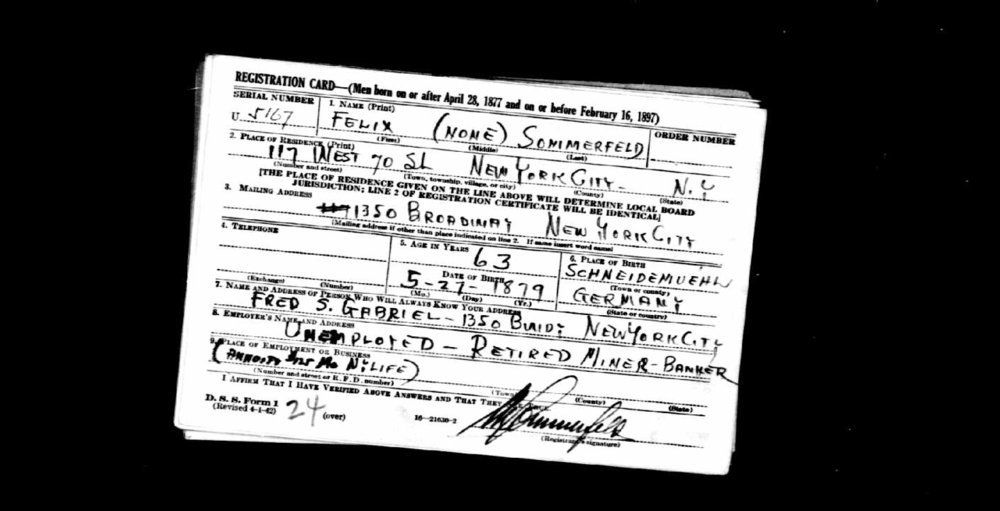 REGISTRATION CARD—(Men born on or after April 28, 1877 and on or before February 16, 1897)
SERIAL NUMBER 1. NAME (Print) ORDER NUMBER
U 5167 FELIX (NONE) SOMMERFELD
(First) (Middle) (Last)
2. PLACE OF RESIDENCE (Print)
117 WEST 70 St NEW YORK CITY- N.Y
(Number and street) (Town, township, village, or city) (County) (State)
[THE PLACE OF RESIDENCE GIVEN ON THE LINE ABOVE WILL DETERMINE LOCAL BOARD
JURISDICTION; LINE 2 OF REGISTRATION CERTIFICATE WILL BE IDENTICAL]
3. MAILING ADDRESS
1350 BROADWAY NEW YORK CITY
[Mailing address if other than place indicated on line 2. If same insert word same]
4. TELEPHONE 5. AGE IN YEARS 6. PLACE OF BIRTH
63 SCHNEIDEMUEHL
DATE OF BIRTH (Town or county)
5-27-1879 GERMANY
(Exchange) (Number) (Mo.) (Day) (Yr.) (State or country)
7. NAME AND ADDRESS OF PERSON WHO WILL ALWAYS KNOW YOUR ADDRESS
FRED S. GABRIEL - 1350 BWDY NEW YORK CITY
8. EMPLOYER'S NAME AND ADDRESS
UNEMPLOYED - RETIRED MINER-BANKER
9. PLACE OF EMPLOYMENT OR BUSINESS
(Number and street or R. F. D. number) (Town) (County) (State)
I AFFIRM THAT I HAVE VERIFIED ABOVE ANSWERS AND THAT THEY ARE TRUE.
D. S. S. Form 1
(Revised 4-1-42) 24 (over) 16—21630-2
(Registrant's signature)